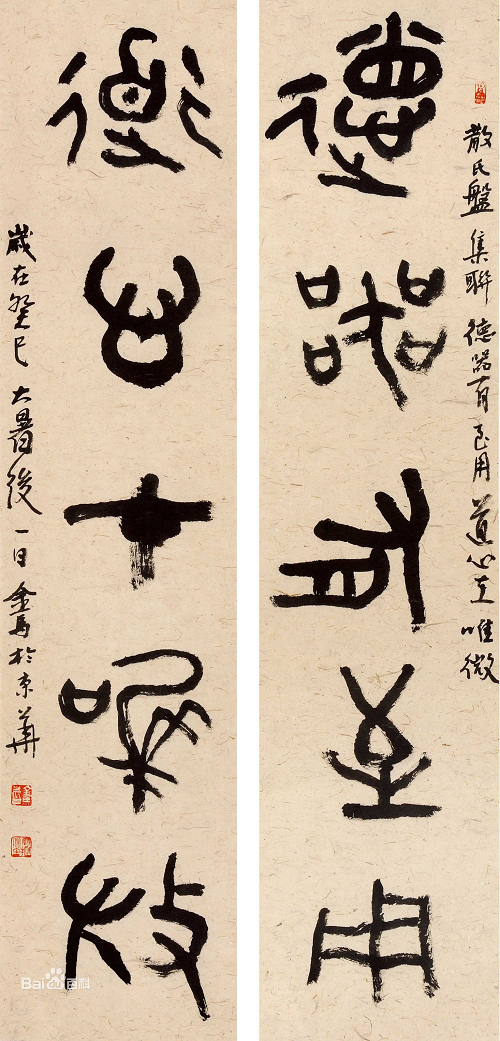 散氏盤集聯 德器有至用 道心在唯微
德器有至用
道心在唯微
歲在癸巳大暑後一日金馬於京華
Bai百科